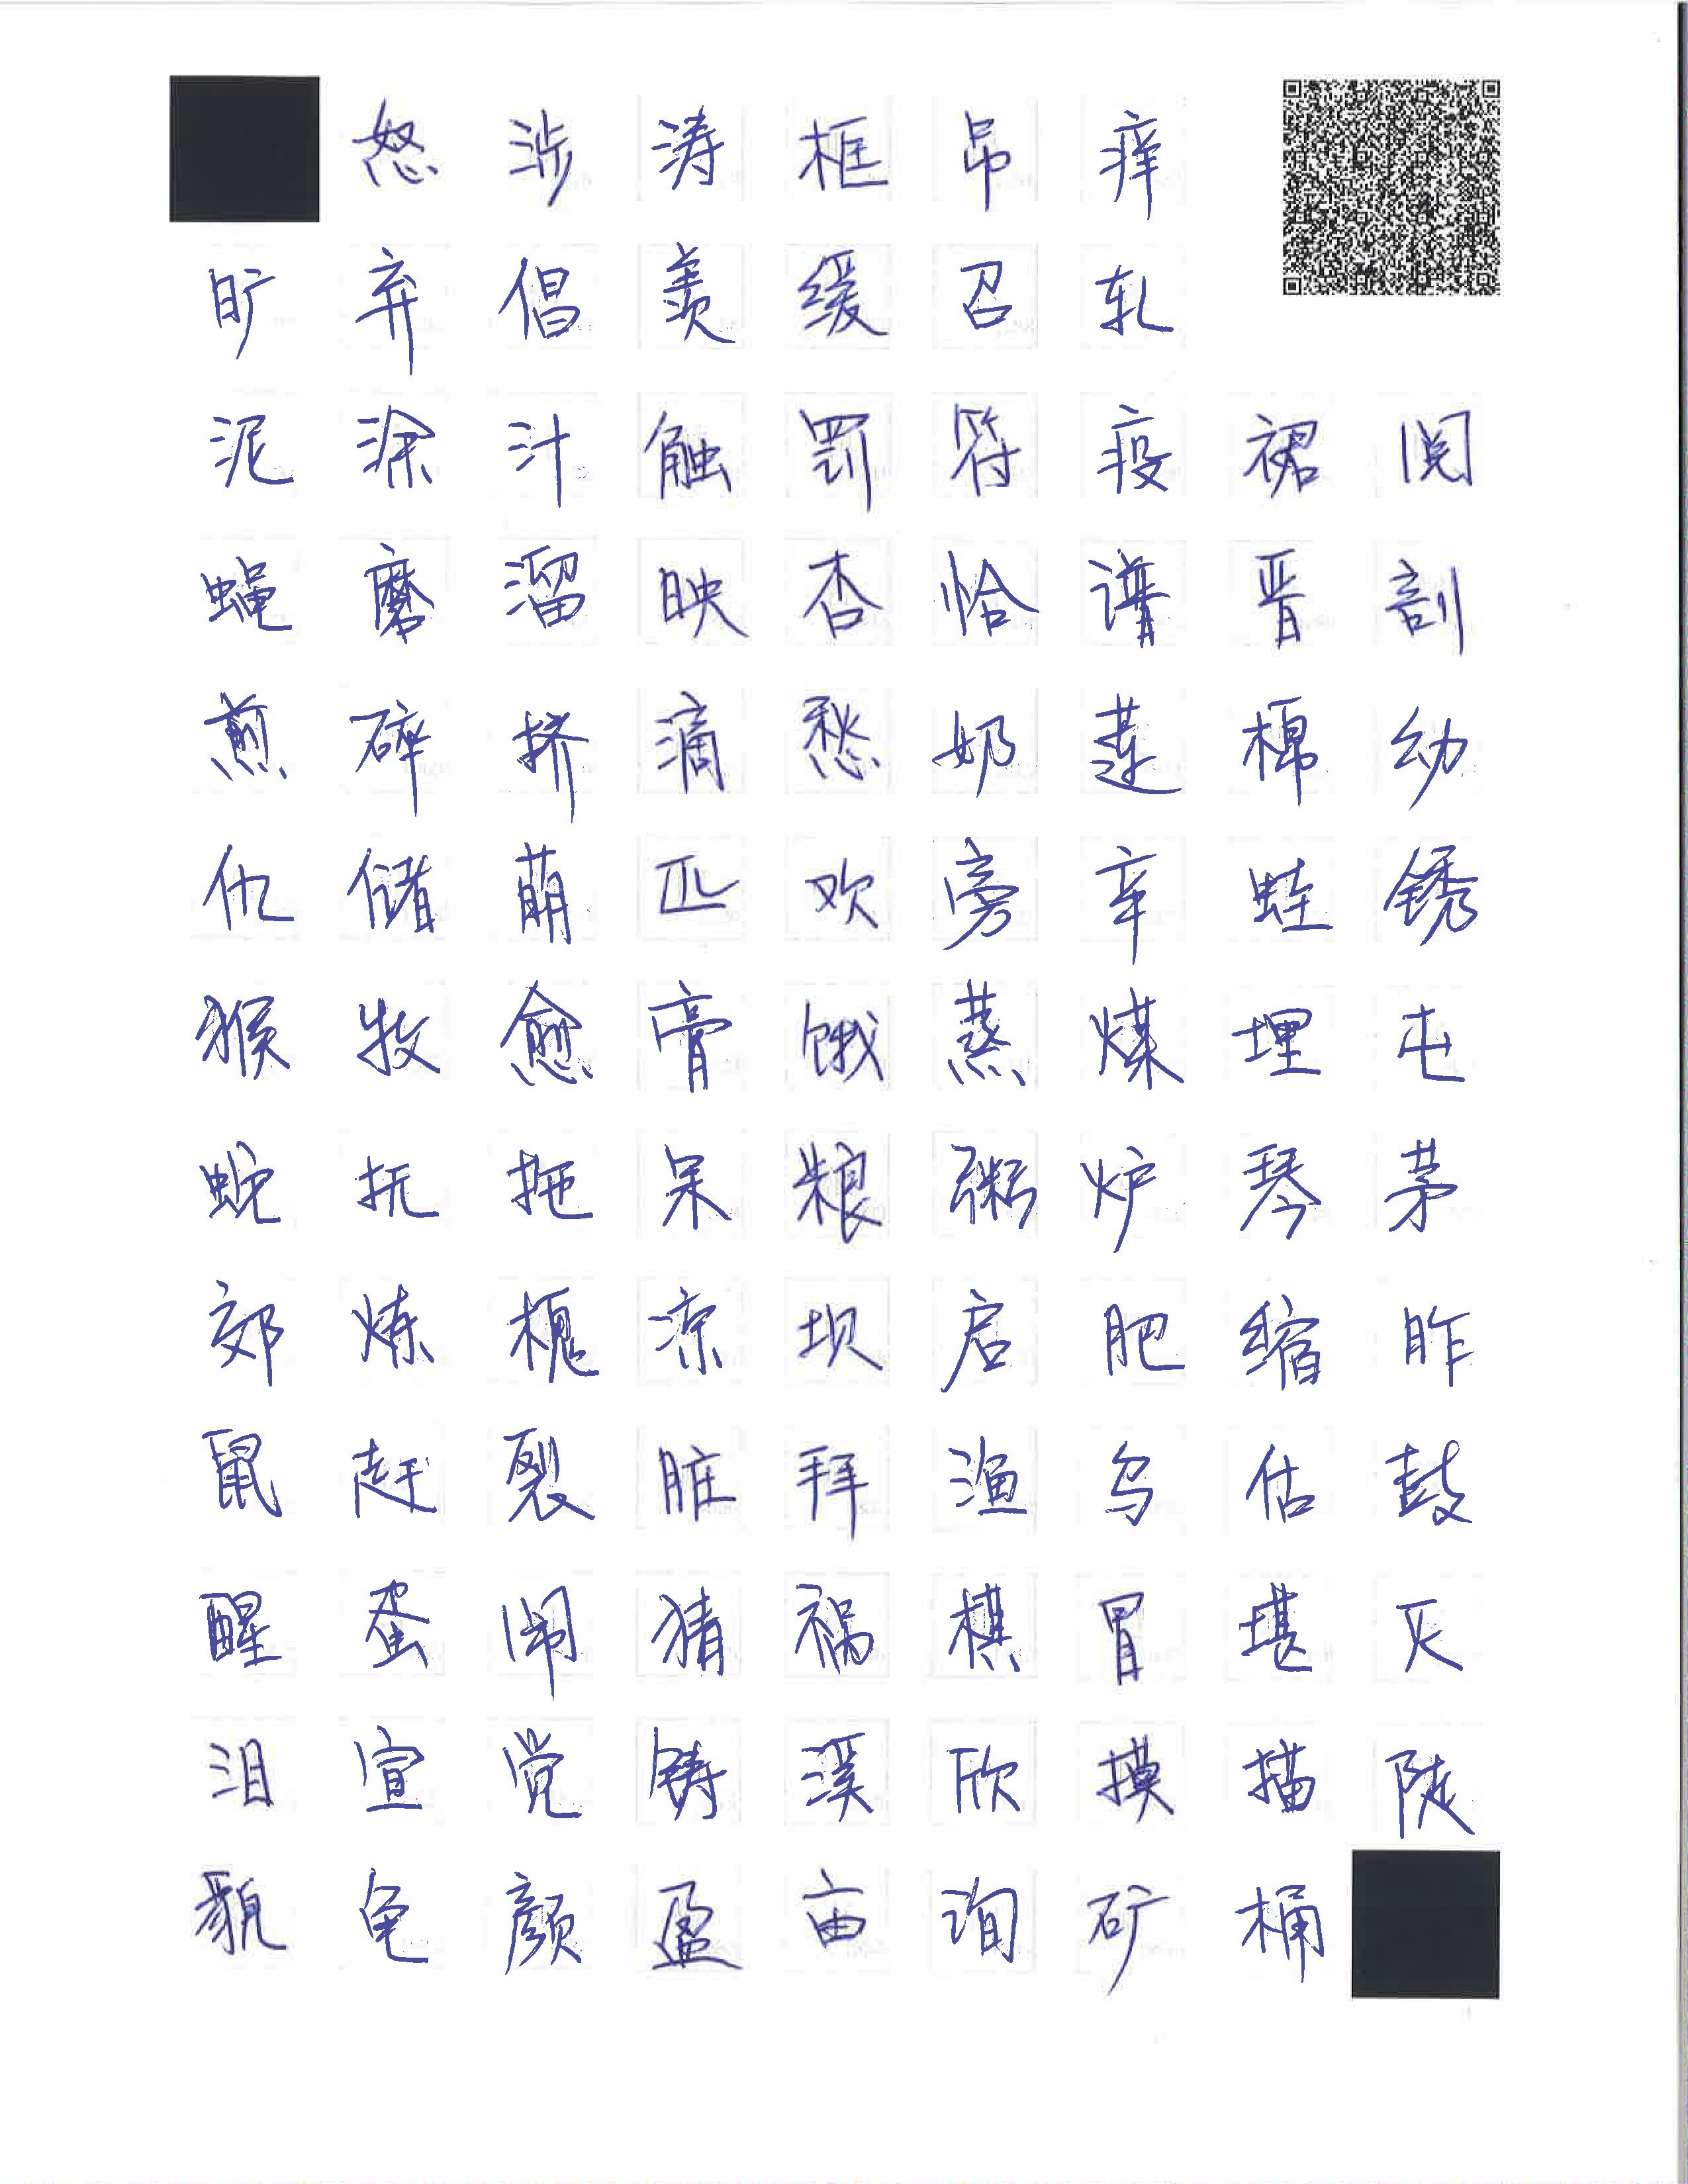 怒涉涛框吊痒
旷弃倡羡缓召轧
泥涂汁触罚符疫裙阅
蝇磨溜映杏恰谱晋剖
煎碎挤滴愁奶莲棉幼
仇储萌匹欢旁辛蛙锈
猴牧愈膏饿蒸煤埋屯
蜕抚拖呆粮粥炉琴茅
郊炼槐凉坝启肥缩昨
鼠赶裂脏拜渔乌估鼓
醒蛋闹猜祸棋冒堪灭
泪宣觉铸溪欣摸描陡
貌龟颜盈亩询矿桶